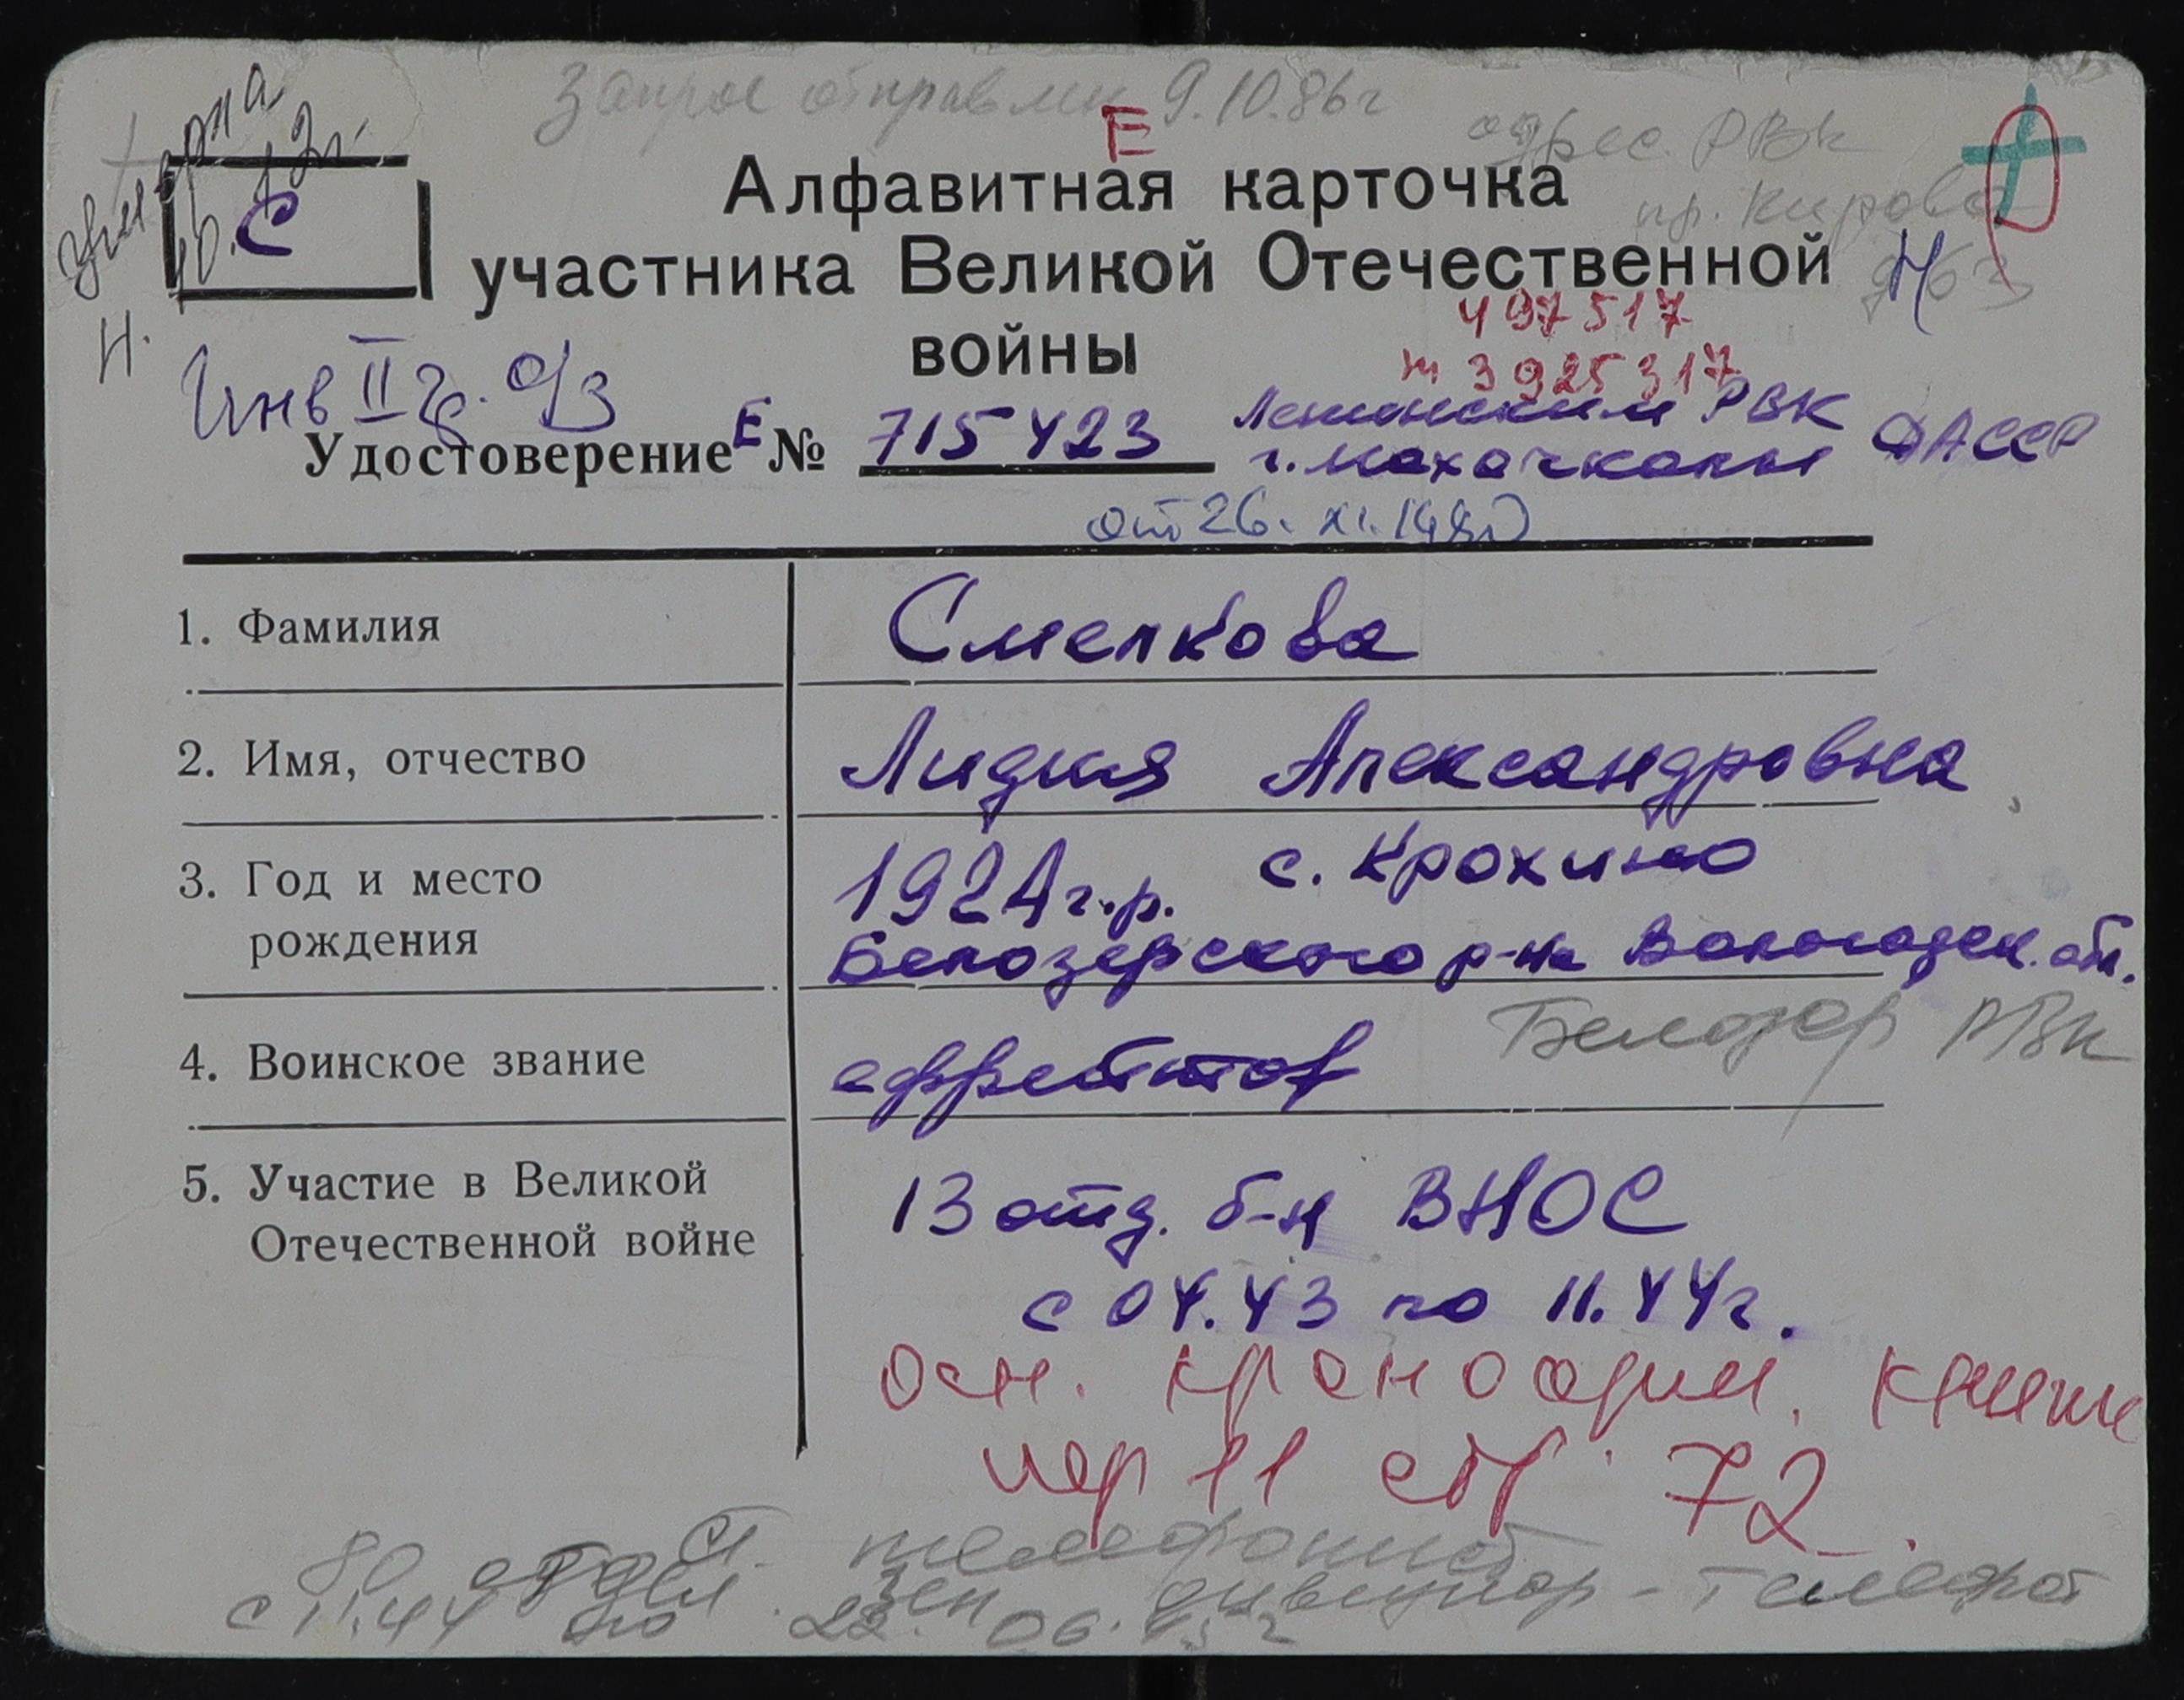 Запрос отправлен 9.10.86г
адрес РВК
пр. Кирова
д 63
умерла
Н.
С
Е
Алфавитная карточка
участника Великой Отечественной
войны
Н
497517
т 3925317
Инв II г. о/з
Удостоверение Е № 715423 Ленинским РВК
г. Махачкалы ДАССР
от 26. XI.
1. Фамилия Смелкова
2. Имя, отчество Лидия Александровна
3. Год и место рождения 1924г.р. с. Крохино
Белозерского р-на Вологодск. обл.
4. Воинское звание ефрейтор Белозер РВК
5. Участие в Великой Отечественной войне 13 отд. б-н ВНОС
с 04.43 по 11.44г.
Осн. красноарм. книжк
стр. 72.
ст. телефонист
80 отдел. зен дивизион - телефон
с 11.44 по 22.06.45г